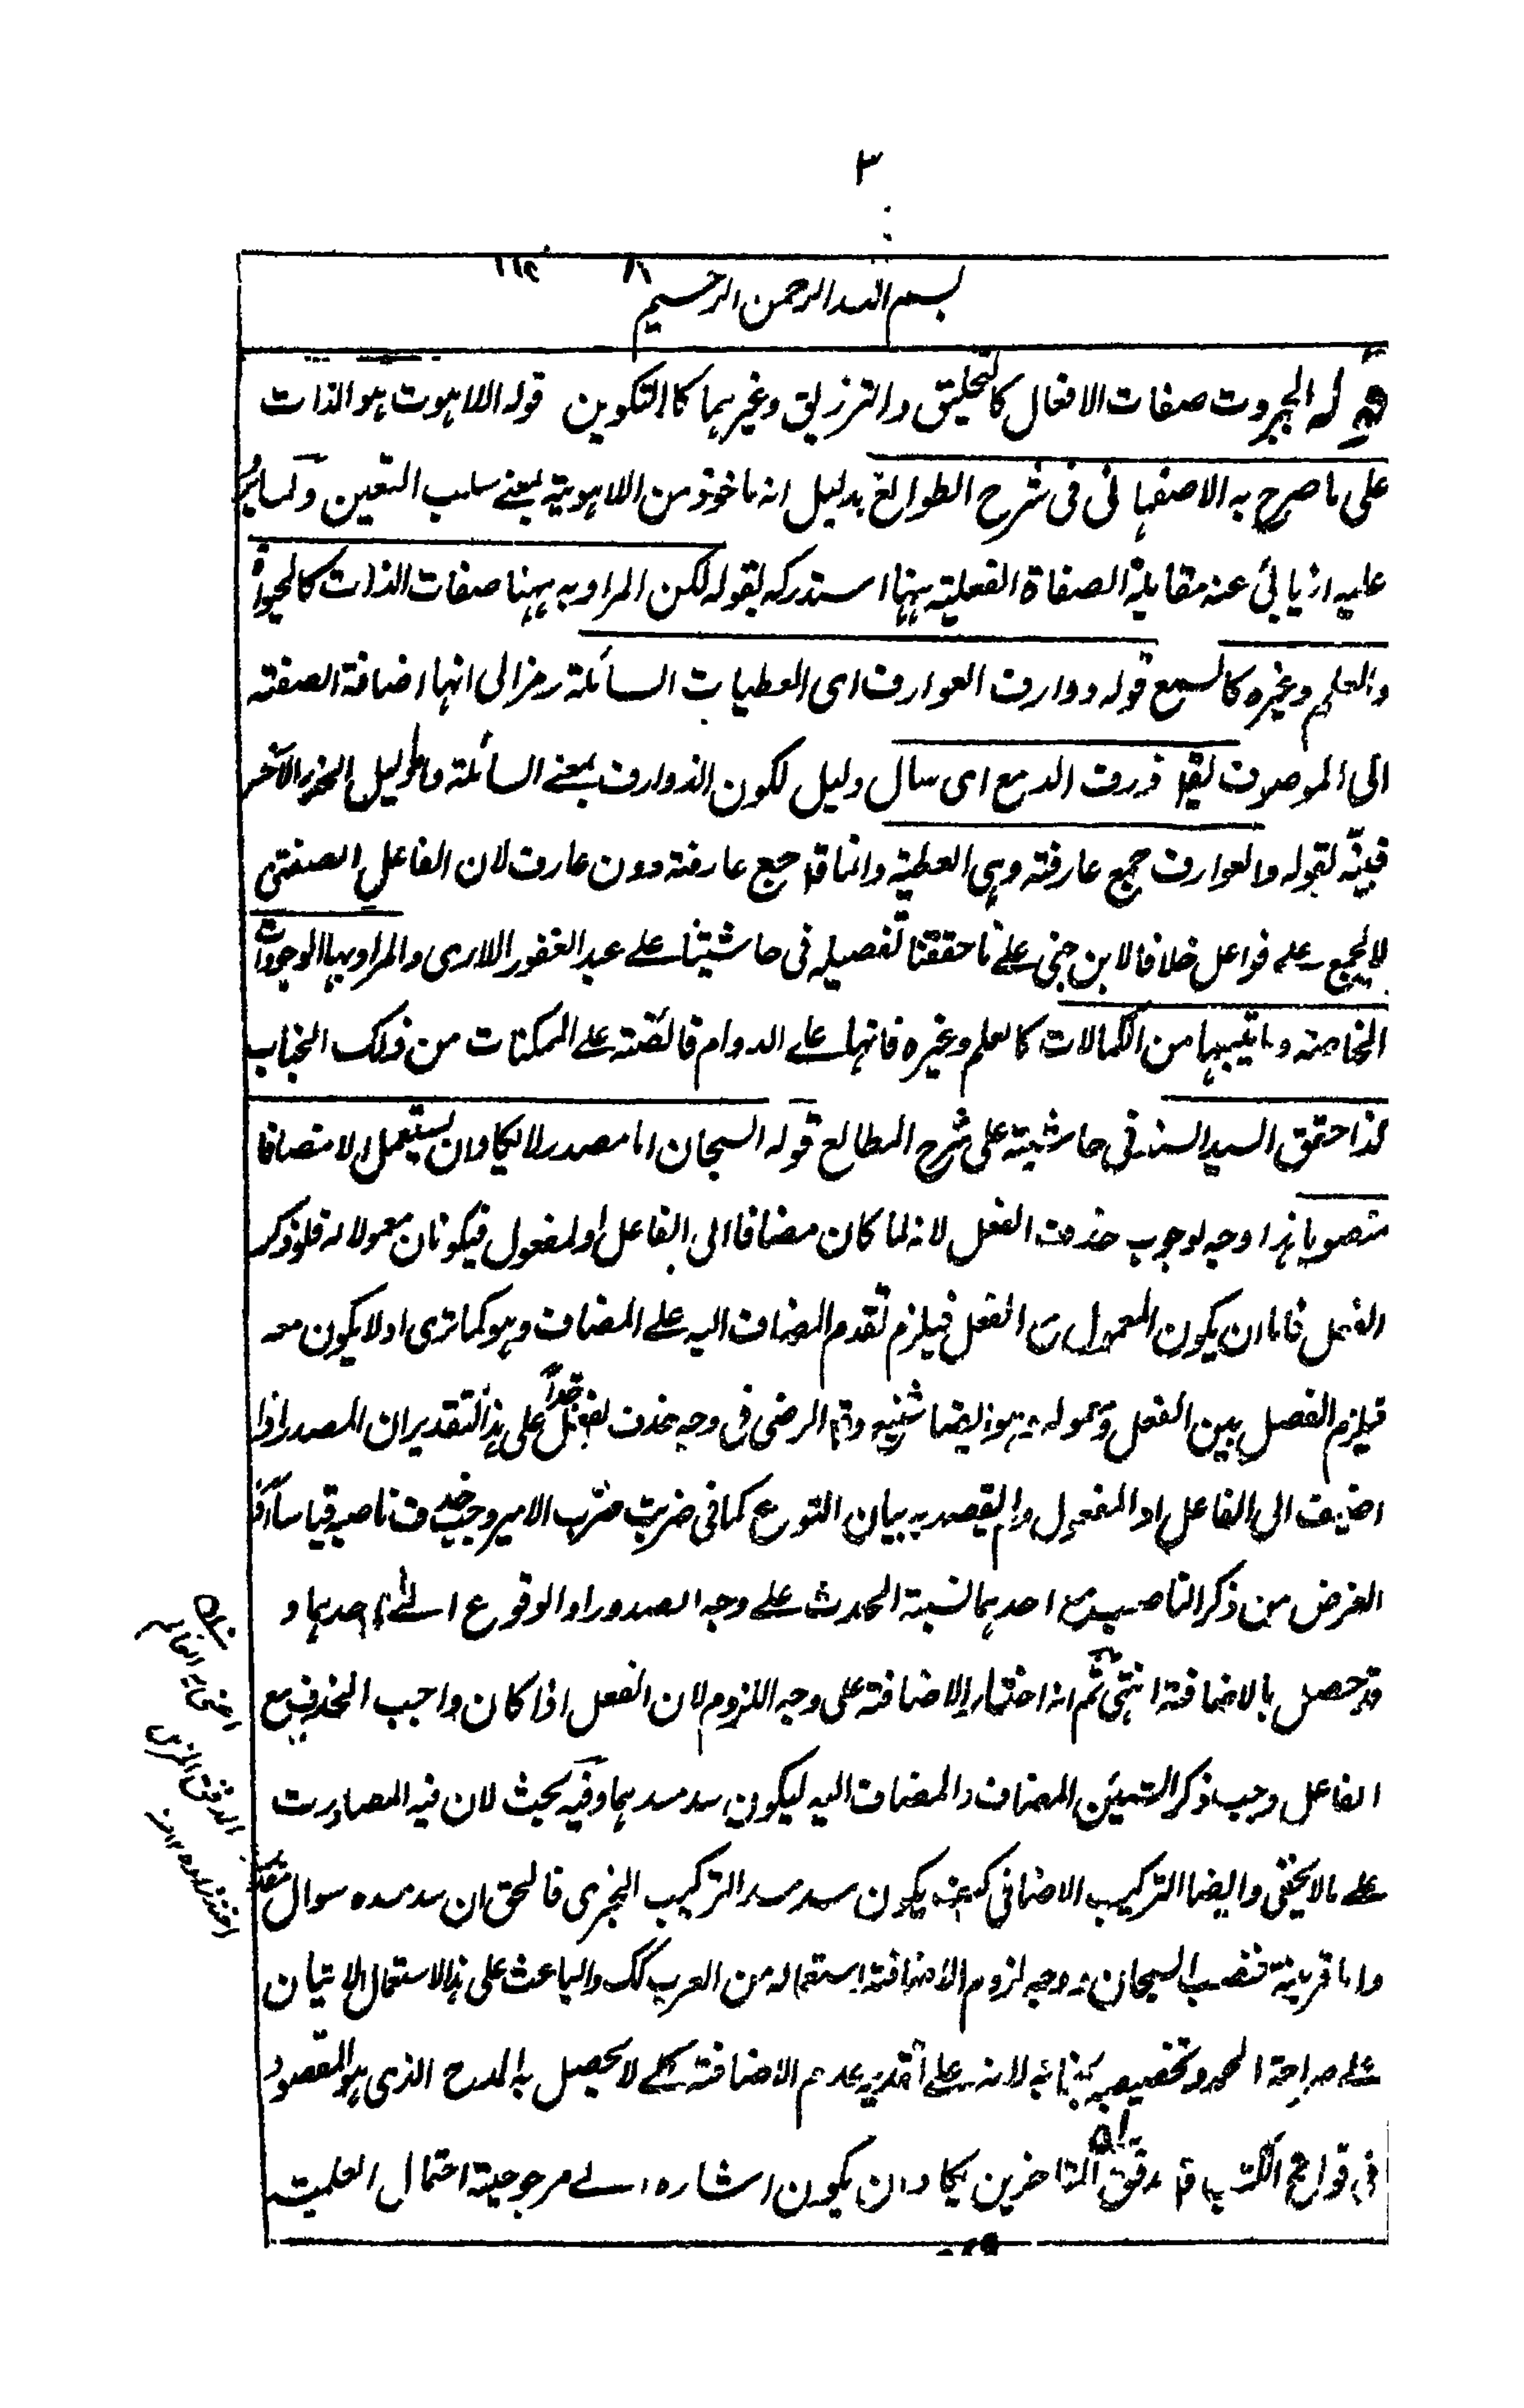 ٣
بسم الله الرحمن الرحيم
قوله الجبروت صفات الافعال كالتخليق والترزيق وغيرهما كالتكوين قوله اللاهوت هو الذات
على ما صرح به الاصفهانى فى شرح الطوالع بدليل انه ماخوذ من اللاهوية بمعنے سلب التعين ولما
عليه اذ يابى عنه مقابلة الصفاة الفعلية ههنا استدركه بقوله لكن المراد به ههنا صفات الذات كالحيوة
والعلم وغيره كالسمع قوله ذوارف العوارف اى العطيات السائلة رمز الى انها اضافة الصفة
الى الموصوف يقا ذرف الدمع اى سال دليل لكون الذوارف بمعنے السائلة واما دليل الجزء الآخر
فبينه بقوله والعوارف جمع عارفة وهى العطية وانما قا جمع عارفة دون عارف لان الفاعل الصفتى
لا يجمع على فواعل خلافا لابن جنى على ما حققنا تفصيله فى حاشيتنا على عبد الغفور اللارى والمراد بها الوجودات
الخاصة وما يتبعها من الكمالات كالعلم وغيره فانها على الدوام فائضة على الممكنات من ذلك الجناب
كذا حقق السيد السند فى حاشية على شرح المطالع قوله السبحان اما مصدر لا يكاد ان يستعمل الا مضافا
منصوبا هذا وجه لوجوب حذف الفعل لانه لما كان مضافا الى الفاعل او المفعول فيكونان معمولا له فلو ذكر
الفعل فاما ان يكون المعمول مع الفعل فيلزم تقدم المضاف اليه على المضاف وهو كما ترى او لا يكون معه
فيلزم الفصل بين الفعل ومعموله وهو ايضا شنيع وقا الرضى فى وجه حذف الفعل على هذا التقدير ان المصدر اذا
اضيف الى الفاعل او المفعول ولم يقصد به بيان النوع كما فى ضربت ضرب الامير وجب حذف ناصبه قياسا اذ
الغرض من ذكر الناصب مع احدهما نسبة الحدث على وجه الصدور او الوقوع الى احدهما و
قد حصل بالاضافة انتهى ثم انه اختار الاضافة على وجه اللزوم لان الفعل اذا كان واجب الحذف مع
الفاعل وجب ذكر الشيئين المضاف والمضاف اليه ليكون سد مسدهما وفيه بحث لان فيه المصادرت
على ما لا يخفى وايضا التركيب الاضافى كيف يكون سد مسد التركيب الخبرى فالحق ان سد مسده سوال مقدر
واما قرينة فنصب السبحان ووجه لزوم الاضافة استعماله من العرب كك والباعث على هذا الاستعمال الاتيان
على صراحة الحمد وتخصيصه بجنابه لانه على تقدير عدم الاضافة كے لا يحصل به المدح الذى هو المقصود
فى فواتح الكتب قا مدقق المتاخرين يكاد ان يكون اشاره الى مرجوحية احتمال العلمية